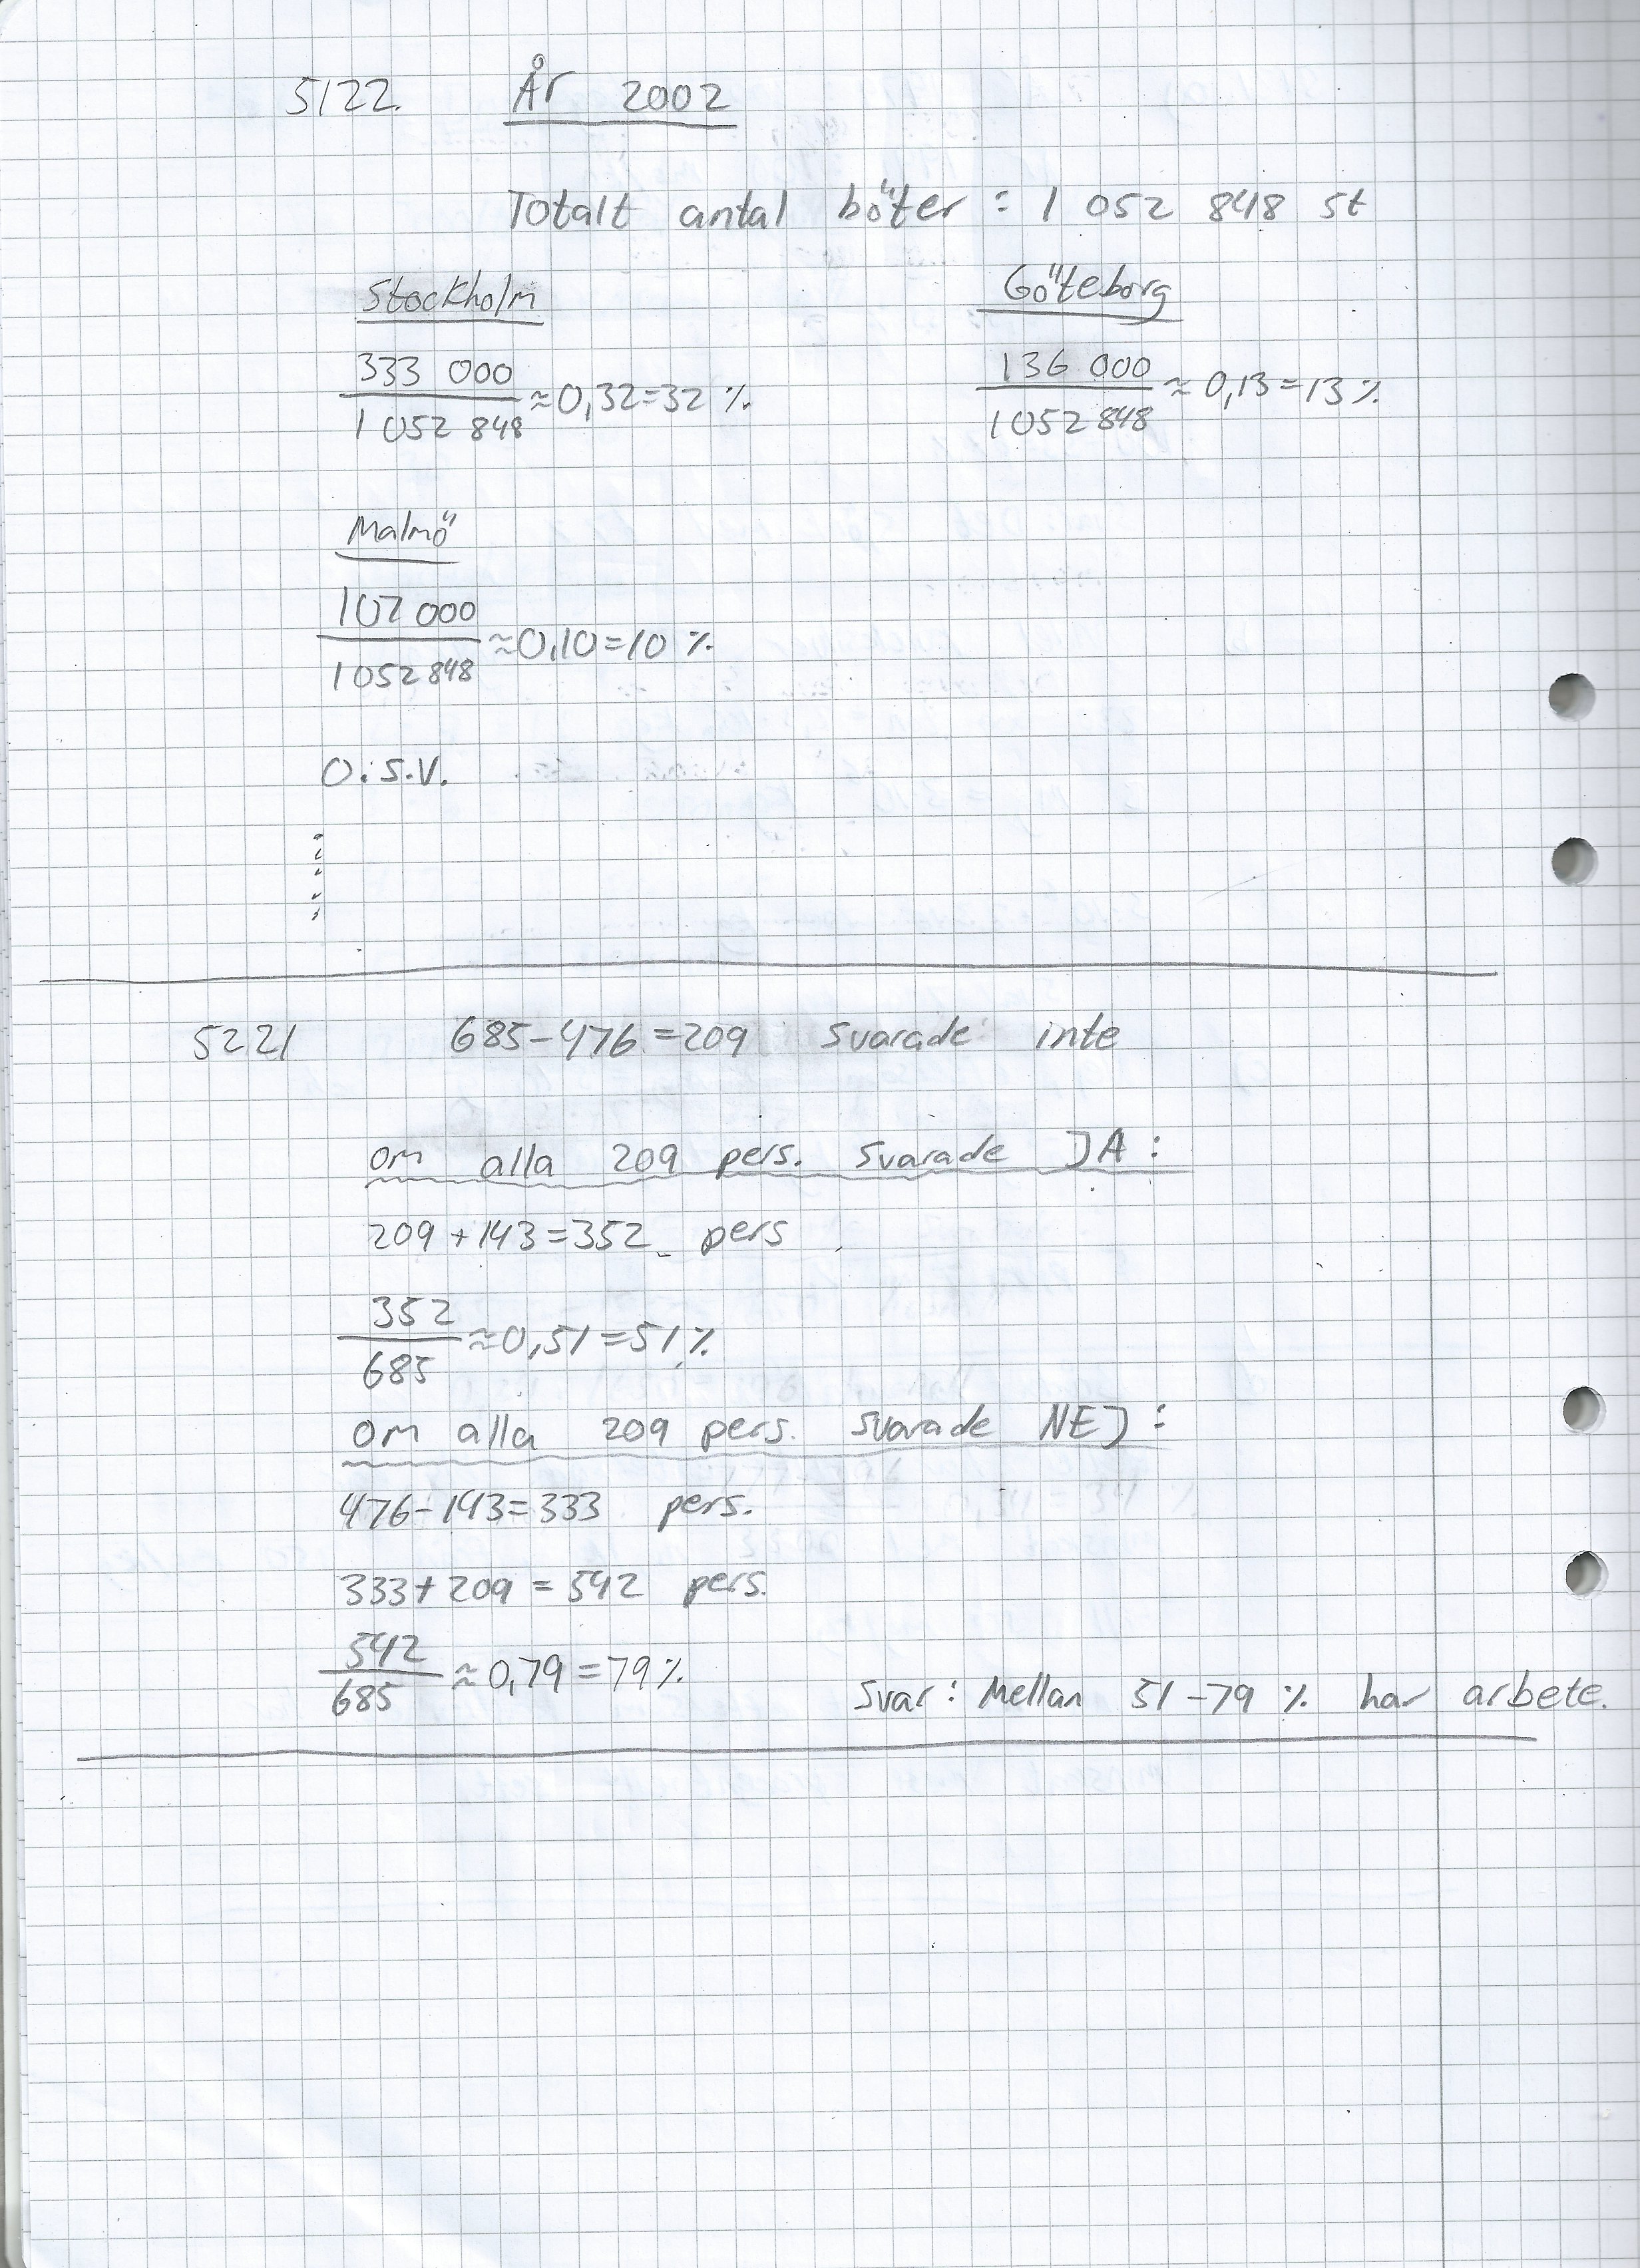 5122. År 2002
Totalt antal böter = 1 052 848 st
Stockholm Göteborg
333 000 / 1 052 848 ≈ 0,32 = 32 % 136 000 / 1 052 848 ≈ 0,13 = 13 %
Malmö
107 000 / 1 052 848 ≈ 0,10 = 10 %
O.S.V.
5221 685 - 476 = 209 svarade inte
om alla 209 pers. svarade JA :
209 + 143 = 352 pers
352 / 685 ≈ 0,51 = 51 %
om alla 209 pers. svarade NEJ :
476 - 143 = 333 pers.
333 + 209 = 542 pers.
542 / 685 ≈ 0,79 = 79 %
Svar : Mellan 51 - 79 % har arbete.